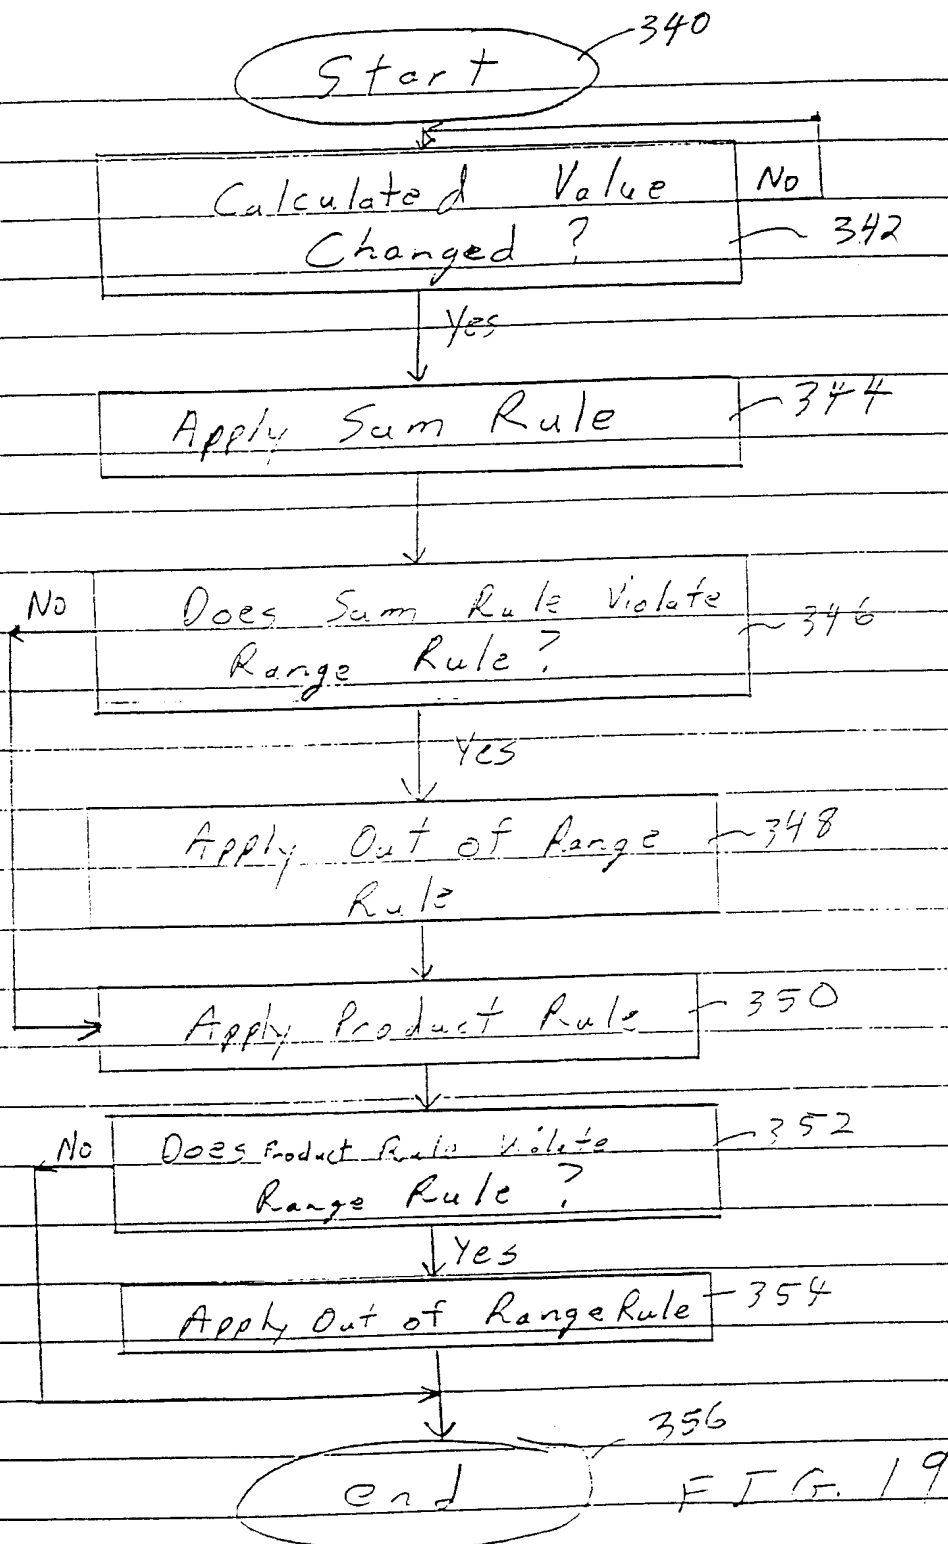 340
Start
Calculated Value
No
Changed ?
342
Yes
Apply Sum Rule
344
No
Does Sum Rule Violate
Range Rule?
346
Yes
Apply Out of Range
Rule
348
Apply Product Rule
350
No
Does Product Rule Violate
Range Rule ?
352
Yes
Apply Out of Range Rule
354
356
end
FIG. 19